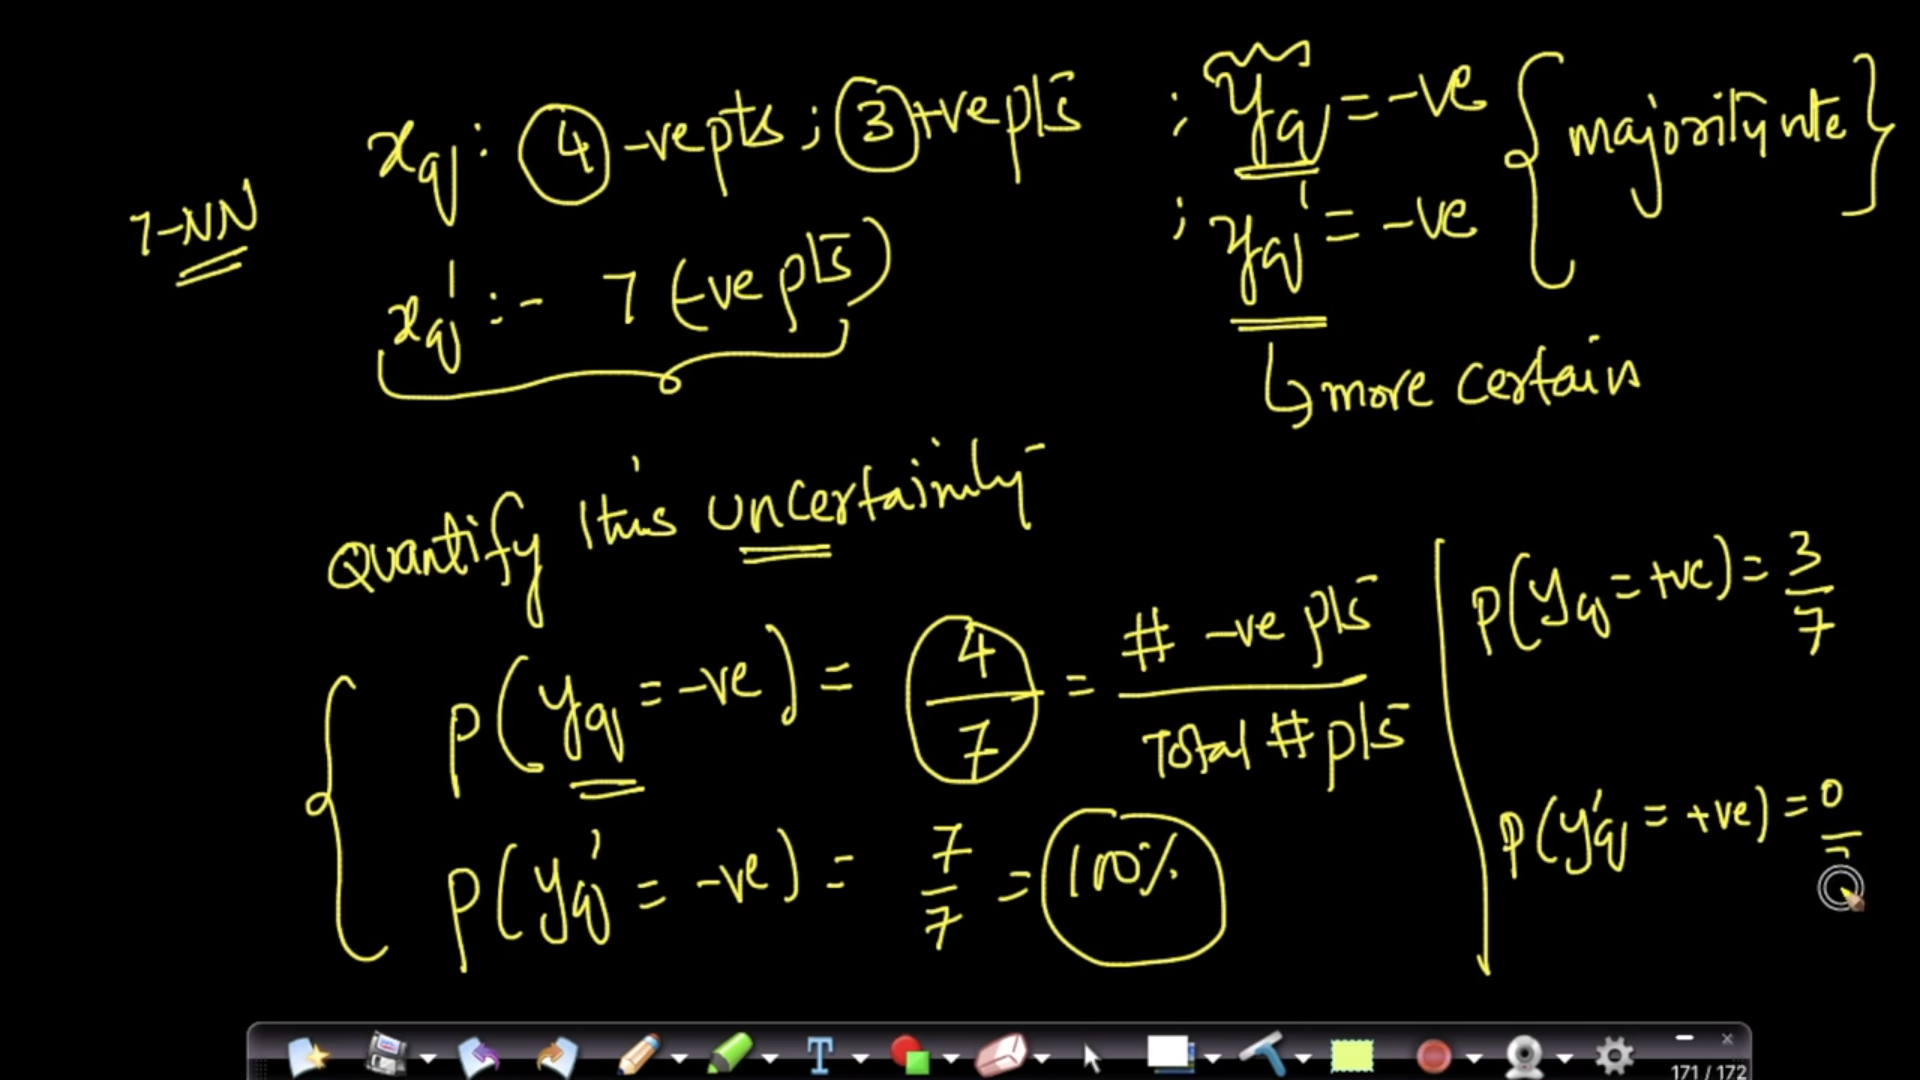 7-NN
xq: 4 -ve pts ; 3 +ve pts ; yq = -ve { majority vote }
xq' :- 7 (-ve pts) ; yq' = -ve
↳ more certain
Quantify this uncertainity
P(yq = -ve) = 4/7 = # -ve pts / Total # pts
P(yq' = -ve) = 7/7 = 100%
P(yq = +ve) = 3/7
P(y'q = +ve) = 0
T
171 / 172